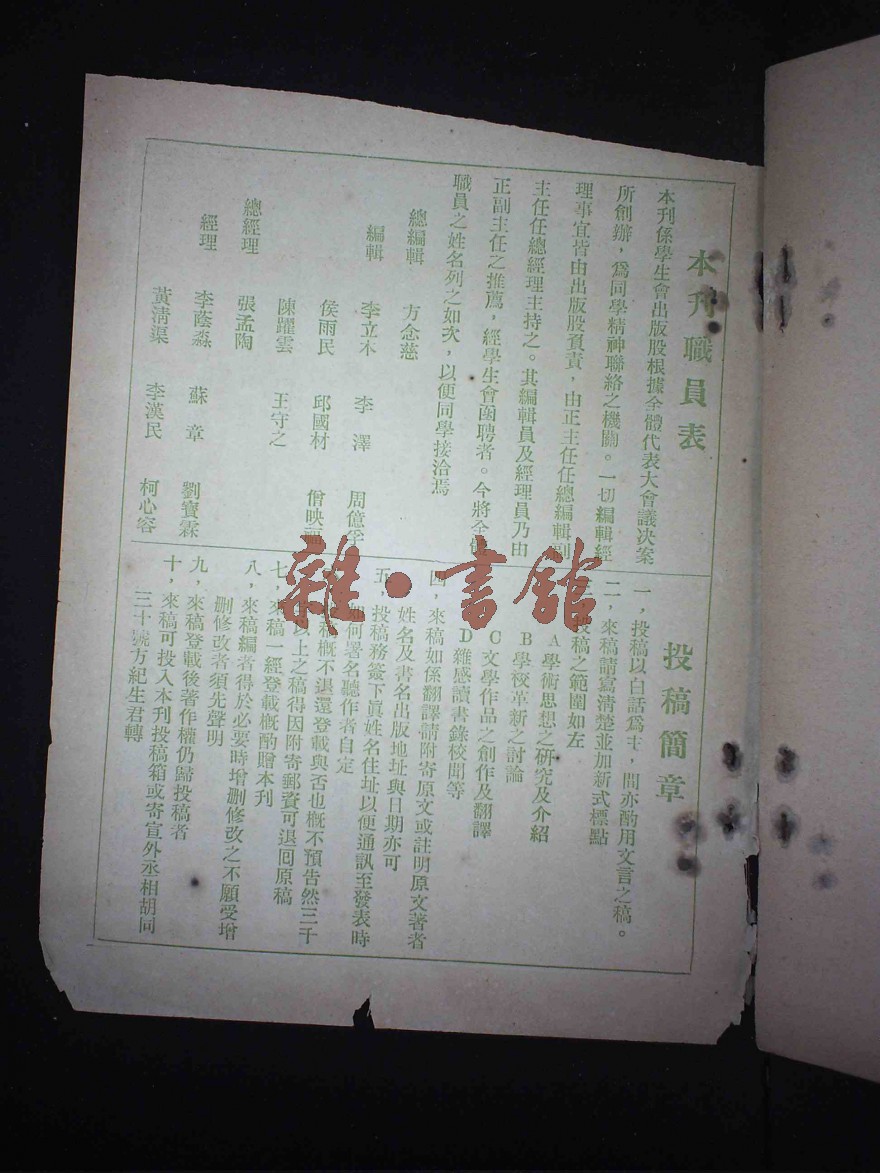 本刊職員表
本刊係學生會出版股根據全體代表大會議決案
所創辦，爲同學精神聯絡之機關。一切編輯經
理事宜皆由出版股負責，由正主任任總編輯副
主任任總經理主持之。其編輯員及經理員乃由
正副主任之推薦，經學生會函聘者。今將全體
職員之姓名列之如次，以便同學接洽焉
總編輯 方念慈
編輯 李立木 李澤 周億孚
侯雨民 邱國材 僧映
陳躍雲 王守之
總經理 張孟陶
經理 李蔭淼 蘇章 劉寶霖
黃清渠 李漢民 柯心容
投稿簡章
一，投稿以白話爲主，間亦酌用文言之稿。
二，來稿請寫清楚並加新式標點
投稿之範圍如左
A 學術思想之研究及介紹
B 學校革新之討論
C 文學作品之創作及翻譯
D 雜感讀書錄校聞等
四，來稿如係翻譯請附寄原文或註明原文著者
姓名及書名出版地址與日期亦可
五，投稿務簽下眞姓名住址以便通訊至發表時
如何署名聽作者自定
稿概不退還登載與否也概不預告然三千
以上之稿得因附寄郵資可退回原稿
七，來稿一經登載概酌贈本刊
八，來稿編者得於必要時增删修改之不願受增
删修改者須先聲明
九，來稿登載後著作權仍歸投稿者
十，來稿可投入本刊投稿箱或寄宣外丞相胡同
三十號方紀生君轉
雜·書館